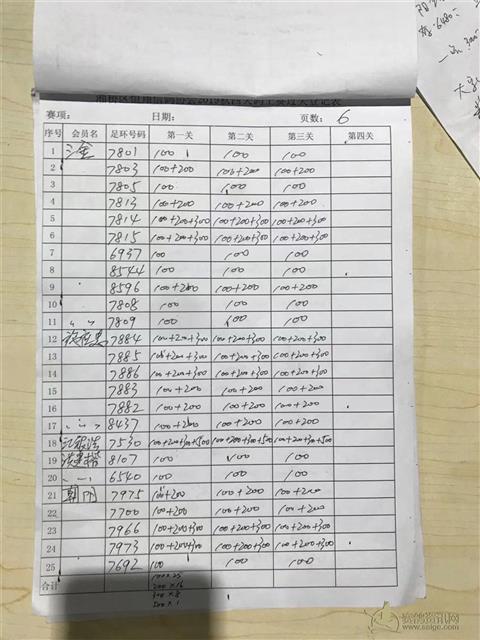 赛项： 日期： 页数：6
序号 会员名 足环号码 第一关 第二关 第三关 第四关
1 三金 7801 100 100 100
2 7803 100+200 100+200 100+200
3 7805 100 100 100
4 7813 100+200 100+200 100+200
5 7814 100+200+300 100+200+300 100+200+300
6 7815 100+200+300 100+200+300 100+200+300
7 6937 100 100 100
8 8544 100 100 100
9 8596 100+200 100+200 100+200
10 7808 100 100 100
11 〃 〃 7809 100 100 100
12 7884 100+200+300 100+200+300 100+200+300
13 7885 100+200+300 100+200+300 100+200+300
14 7886 100+200+300 100+200+300 100+200+300
15 7883 100+200 100+200 100+200
16 7882 100+200 100+200 100+200
17 8437 100+200 100+200 100+200
18 7530 100+200+300+500 100+200+300+500 100+200+300+500
19 8107 100 100 100
20 6540 100 100 100
21 朝阳 7975 100+200 100+200 100+200
22 7700 100+200 100+200 100+200
23 7966 100+200+300 100+200+300 100+200+300
24 7973 100+200+300 100+200+300 100+200+300
25 7692 100 100 100
合计
100×25
200×16
300×8
500×1
www.saige.com